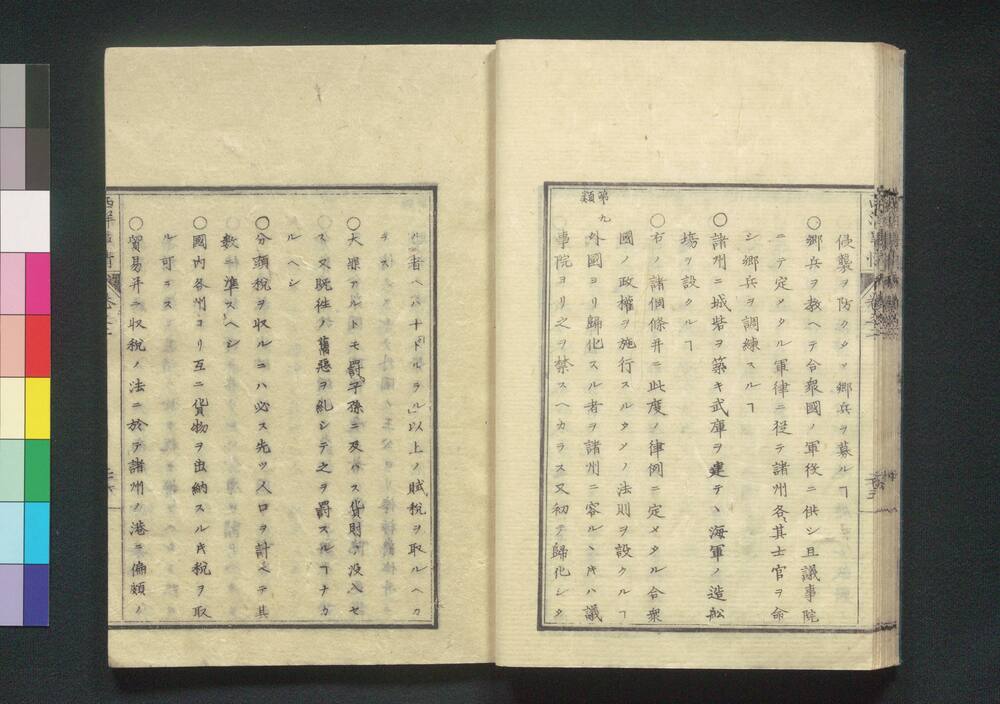 侵襲ヲ防クタメ郷兵ヲ募ルヿ
○郷兵ヲ教ヘテ合衆國ノ軍役ニ供シ且議事院
ニテ定メタル軍律ニ從テ諸州各其士官ヲ命
シ郷兵ヲ調練スルヿ
○諸州ニ城砦ヲ築キ武庫ヲ建テヽ海軍ノ造舩
塲ヲ設クルヿ
○右ノ諸個條并ニ此度ノ律例ニ定メタル合衆
國ノ政權ヲ施行スルタメノ法則ヲ設クルヿ
第九類
外國ヨリ歸化スル者ヲ諸州ニ容ルヽ𪜈ハ議
事院ヨリ之ヲ禁スヘカラス又初テ歸化シタ
ル者ヘハ十ドルラル以上ノ賦税ヲ取ルヘカ
ラス
○大罪アルトモ罰子孫ニ及ハス貨財ヲ没入セ
ス又既徃ノ舊惡ヲ糺シテ之ヲ罰スルヿナカ
ルヘシ
○分頭税ヲ取ルニハ必ス先ツ人口ヲ計ヘテ其
數ニ準スヘシ
○國内各州ヨリ互ニ貨物ヲ出納スル𪜈税ヲ取
ル可ラス
○貿易并ニ收税ノ法ニ於テ諸州ノ港ニ偏頗ノ